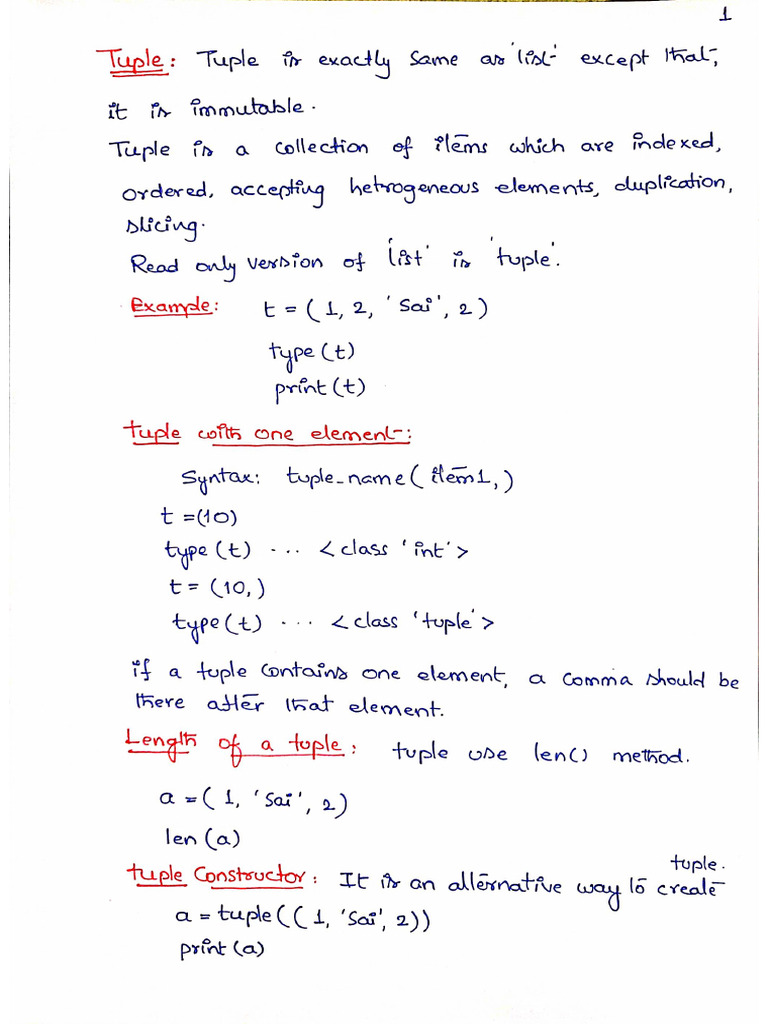 1
Tuple: Tuple is exactly same as 'list' except that,
it is immutable.
Tuple is a collection of items which are indexed,
ordered, accepting hetrogeneous elements, duplication,
slicing.
Read only version of 'list' is 'tuple'.
Example: t = ( 1, 2, 'Sai', 2 )
type (t)
print (t)
tuple with one element:
Syntax: tuple_name ( item1, )
t =(10)
type (t) ... < class 'int' >
t = (10, )
type (t) ... < class 'tuple' >
if a tuple contains one element, a comma should be
there after that element.
Length of a tuple: tuple use len() method.
a = ( 1, 'Sai', 2)
len (a)
tuple Constructor: It is an alternative way to create tuple.
a = tuple (( 1, 'Sai', 2))
print (a)